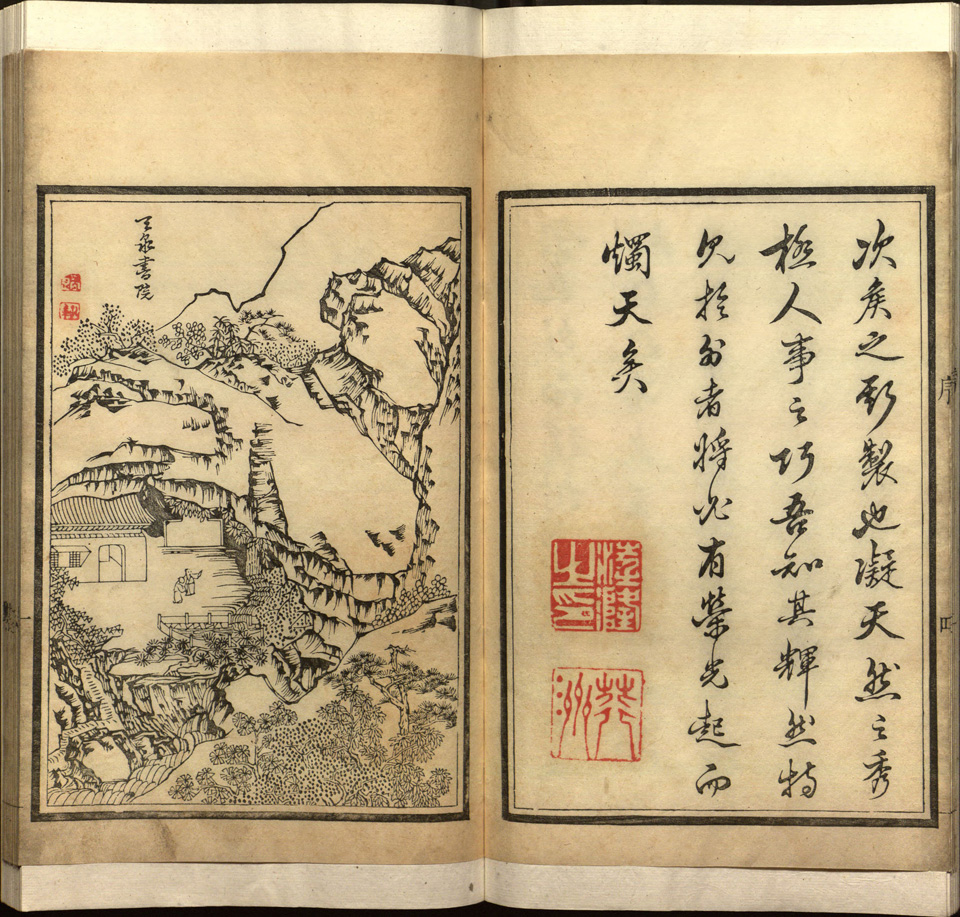 次矦之斯製也凝天然之秀
極人事之巧吾知其輝然特
見於外者將必有榮光起而
燭天矣
序
四
天泉書院